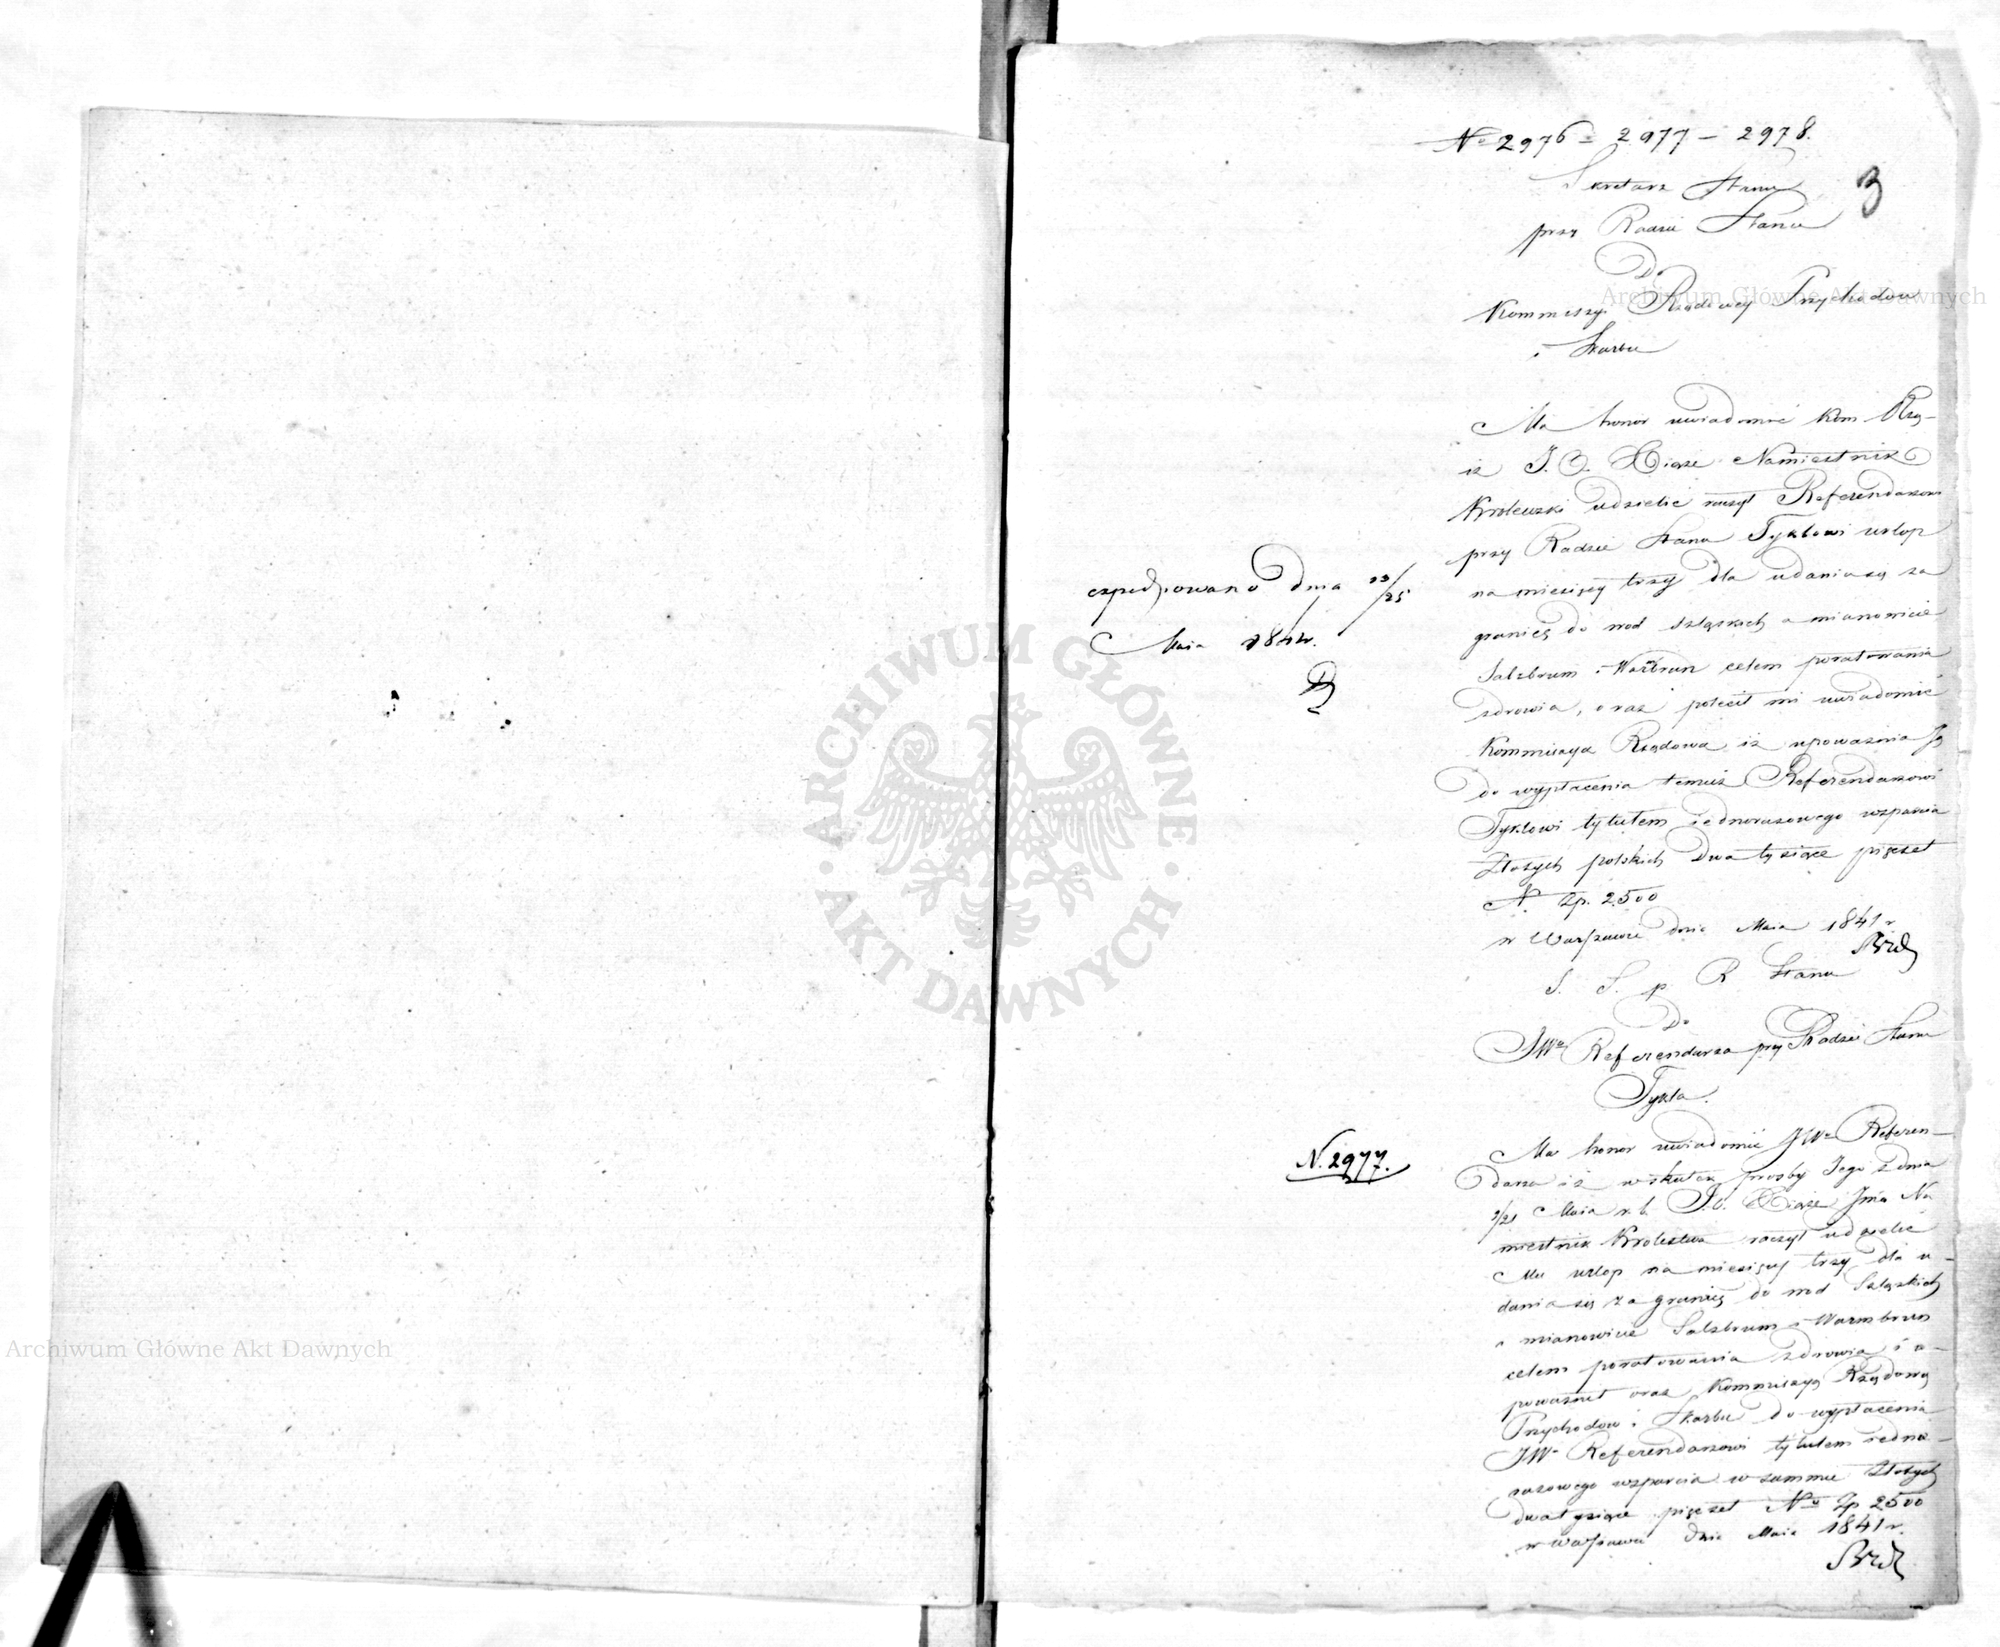 No 2976 – 2977 – 2978.
3
Sekretarz Stanu
przy Radzie Stanu
Do
Kommissyi Rządowey Przychodow
i Skarbu
Ma honor uwiadomić Kom. Rzą-
iż J. O. Xiąże Namiestnik
Krolewski udzielić raczył Referendarzowi
przy Radzie Stanu Tyklowi urlop
na miesięcy trzy dla udania się za
granicę do wod Szląskich a mianowicie
Salzbrunn i Warmbrun celem poratowania
zdrowia, oraz polecił mi uwiadomić
Kommissya Rządowa iż upoważnia Ją
do wypłacenia temuż Referendarzowi
Tyklowi tytułem iednorazowego wsparcia
Złotych polskich dwa tysiące pięcset
N. Zp. 2500
w Warszawie dnia Maia 1841 r.
expedyowano dnia /25
Maia 1841 r.
S. S. p. R Stanu
Do
JWo Referendarza przy Radzie Stanu
Tykla.
N. 2977.
Ma honor uwiadomić JWo Referen-
darza iż w skutek prosby Jego z dnia
9/21 Maia r. b. J. O. Xiąże Jmć Na
miestnik Krolestwa raczył udzielić
Mu urlop na miesięcy trzy dla u-
dania się za granicę do wod Szląskich
a mianowicie Salzbrunn i Warmbrun
celem poratowania zdrowia i u-
poważnił oraz Kommissyą Rządową
Przychodow i Skarbu do wypłacenia
JW. Referendarzowi tytułem iedno-
razowego wsparcia w summie Złotych
dwa tysiące pięcset No Zp 2500
w Warszawie dnia Maia 1841 r.
Archiwum Główne Akt Dawnych
Archiwum Główne Akt Dawnych
ARCHIWUM GŁÓWNE · AKT DAWNYCH ·